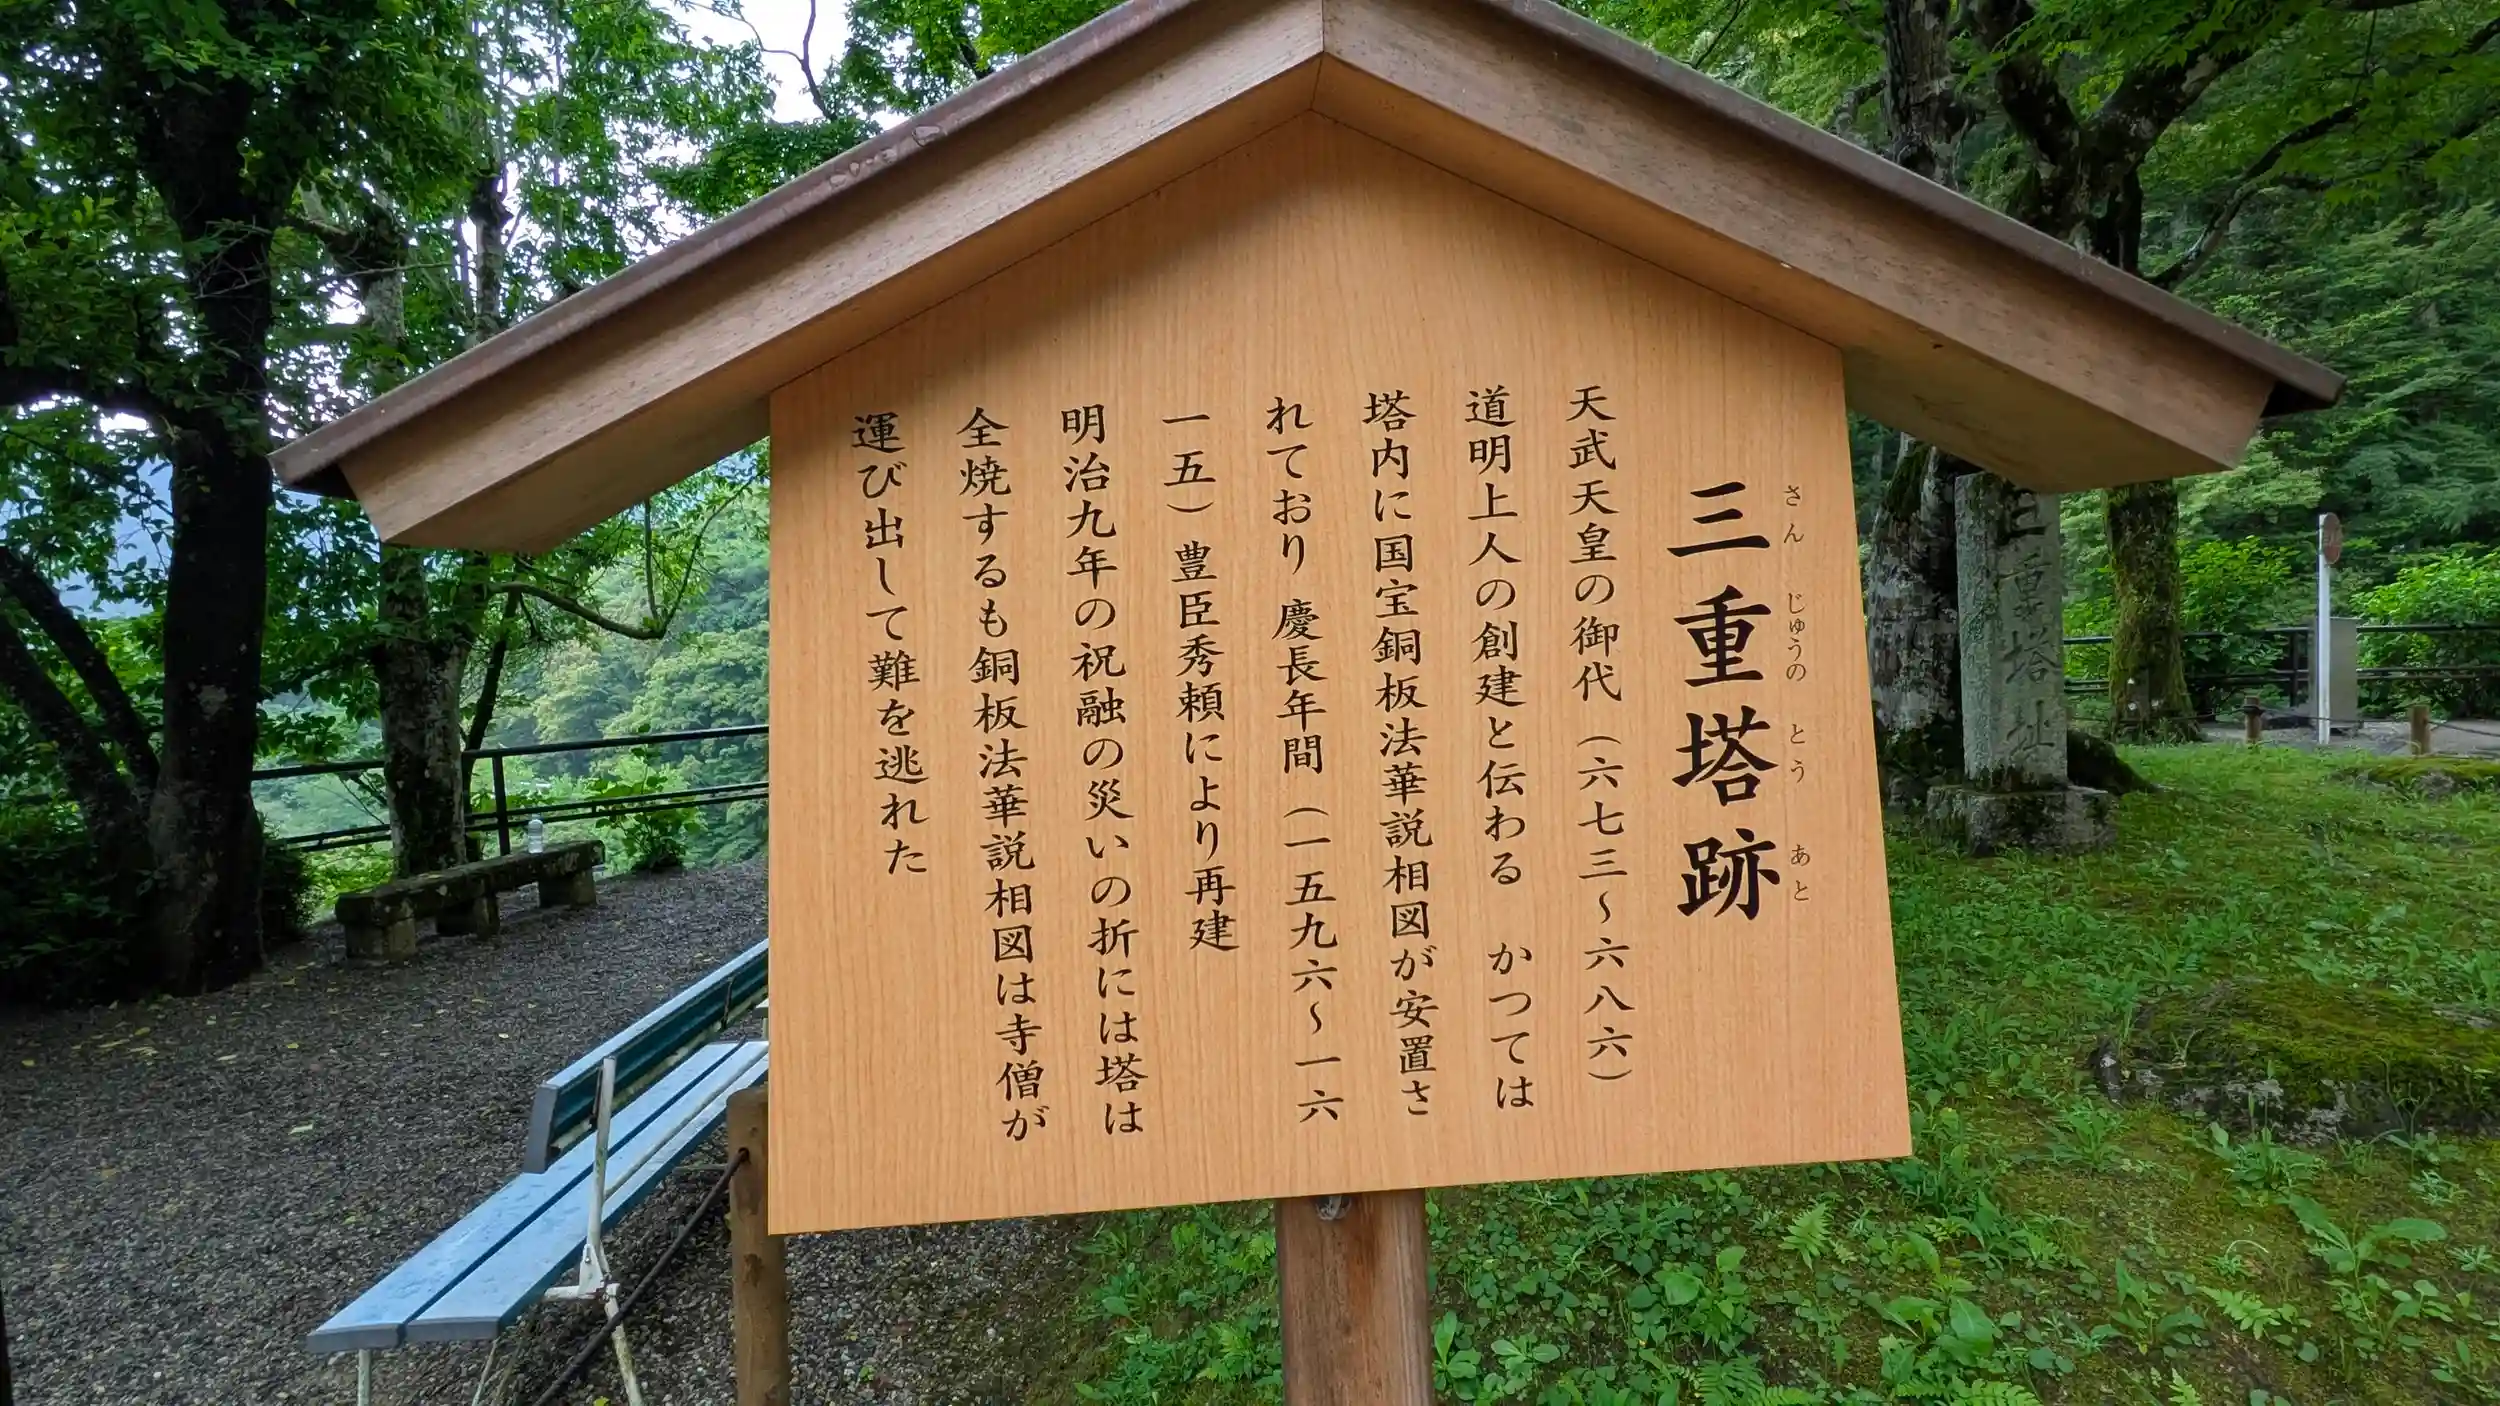 三重塔跡
さん じゅうの とう あと
天武天皇の御代（六七三〜六八六）
道明上人の創建と伝わる　かつては
塔内に国宝銅板法華説相図が安置さ
れており　慶長年間（一五九六〜一六
一五）豊臣秀頼により再建
明治九年の祝融の災いの折には塔は
全焼するも銅板法華説相図は寺僧が
運び出して難を逃れた
三重塔址